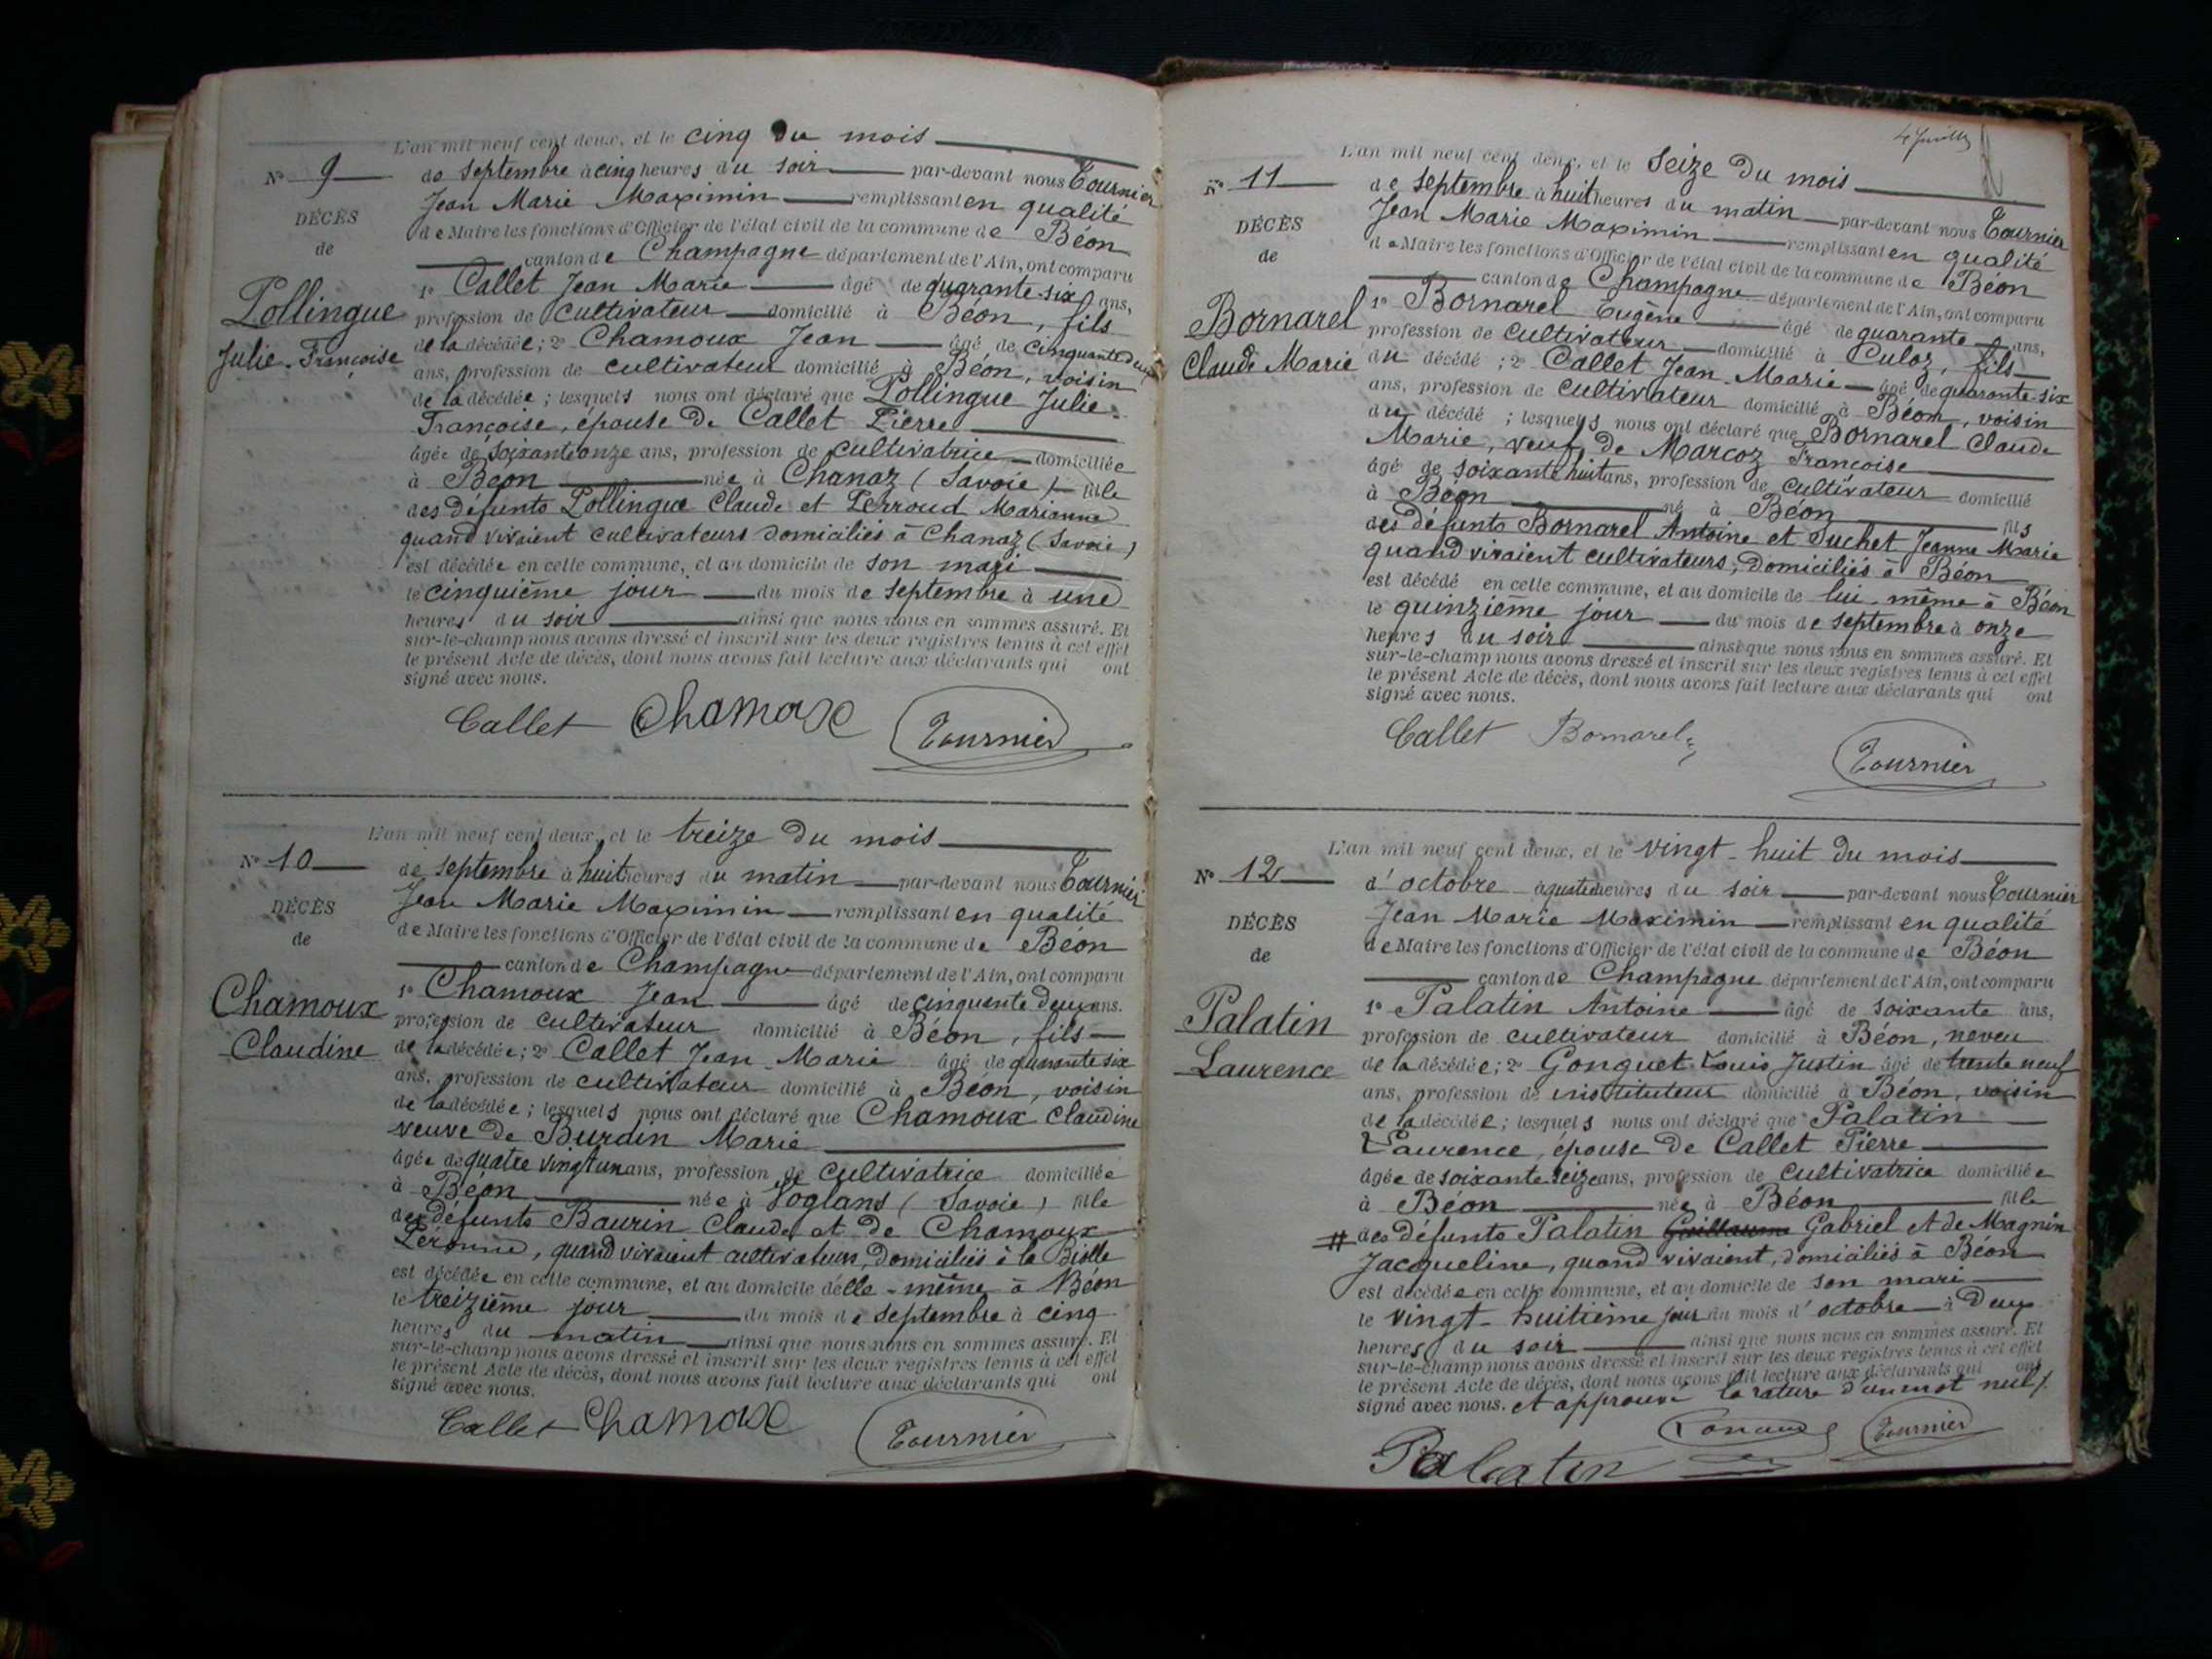 L'an mil neuf cent deux, et le cinq du mois
No 9
de septembre à cinq heures du soir par-devant nous Tournier
Jean Marie Maximin remplissant en qualité
DÉCÈS
de Maire les fonctions d'Officier de l'état civil de la commune de Béon
de
canton de Champagne département de l'Ain, ont comparu
1o Callet Jean Marie âgé de quarante-six ans,
Pollingue
profession de cultivateur domicilié à Béon, fils
Julie-Françoise
de la décédée; 2o Chamoux Jean âgé de cinquante deux
ans, profession de cultivateur domicilié à Béon, voisin
de la décédée; lesquels nous ont déclaré que Pollingue Julie-
Françoise, épouse de Callet Pierre
âgée de soixante onze ans, profession de cultivatrice domiciliée
à Béon née à Chanaz (Savoie) fille
des défunts Pollingue Claude et Perroud Marianne
quand vivaient cultivateurs domiciliés à Chanaz (Savoie)
est décédée en cette commune, et au domicile de son mari
le cinquième jour du mois de septembre à une
heures du soir ainsi que nous nous en sommes assuré. Et
sur-le-champ nous avons dressé et inscrit sur les deux registres tenus à cet effet
le présent Acte de décès, dont nous avons fait lecture aux déclarants qui ont
signé avec nous.
Callet Chamoux Tournier
L'an mil neuf cent deux, et le treize du mois
No 10
de septembre à huit heures du matin par-devant nous Tournier
Jean Marie Maximin remplissant en qualité
DÉCÈS
de Maire les fonctions d'Officier de l'état civil de la commune de Béon
de
canton de Champagne département de l'Ain, ont comparu
Chamoux
1o Chamoux Jean âgé de cinquante deux ans.
profession de cultivateur domicilié à Béon, fils
Claudine
de la décédée; 2o Callet Jean-Marie âgé de quarante six
ans, profession de cultivateur domicilié à Béon, voisin
de la décédée; lesquels nous ont déclaré que Chamoux Claudine
veuve de Burdin Marie
âgée de quatre vingt un ans, profession de cultivatrice domiciliée
à Béon née à Voglans (Savoie) fille
des défunts Baurin Claude et de Chamoux
Peronne, quand vivaient cultivateurs, domiciliés à la Biolle
est décédée en cette commune, et au domicile d'elle-même à Béon
le treizième jour du mois de septembre à cinq
heures du matin ainsi que nous nous en sommes assuré. Et
sur-le-champ nous avons dressé et inscrit sur les deux registres tenus à cet effet
le présent Acte de décès, dont nous avons fait lecture aux déclarants qui ont
signé avec nous.
Callet Chamoux Tournier
L'an mil neuf cent deux, et le seize du mois
No 11
de septembre à huit heures du matin par-devant nous Tournier
Jean Marie Maximin remplissant en qualité
DÉCÈS
de Maire les fonctions d'Officier de l'état civil de la commune de Béon
de
canton de Champagne département de l'Ain, ont comparu
Bornarel
1o Bornarel Eugène âgé de quarante ans,
profession de cultivateur domicilié à Culoz, fils
Claude Marie
du décédé; 2o Callet Jean-Marie âgé de quarante-six
ans, profession de cultivateur domicilié à Béon, voisin
du décédé; lesquels nous ont déclaré que Bornarel Claude
Marie, veuf de Marcoz Françoise
âgé de soixante huit ans, profession de cultivateur domicilié
à Béon né à Béon fils
des défunts Bornarel Antoine et Suchet Jeanne Marie
quand vivaient cultivateurs, domiciliés à Béon
est décédé en cette commune, et au domicile de lui-même à Béon
le quinzième jour du mois de septembre à onze
heures du soir ainsi que nous nous en sommes assuré. Et
sur-le-champ nous avons dressé et inscrit sur les deux registres tenus à cet effet
le présent Acte de décès, dont nous avons fait lecture aux déclarants qui ont
signé avec nous.
Callet Bornarel Tournier
L'an mil neuf cent deux, et le vingt-huit du mois
No 12
d'octobre à quatre heures du soir par-devant nous Tournier
Jean Marie Maximin remplissant en qualité
DÉCÈS
de Maire les fonctions d'Officier de l'état civil de la commune de Béon
de
canton de Champagne département de l'Ain, ont comparu
Palatin
1o Palatin Antoine âgé de soixante ans,
profession de cultivateur domicilié à Béon, neveu
Laurence
de la décédée; 2o Gonguet Louis Justin âgé de trente neuf
ans, profession de instituteur domicilié à Béon, voisin
de la décédée; lesquels nous ont déclaré que Palatin
Laurence, épouse de Callet Pierre
âgée de soixante seize ans, profession de cultivatrice domiciliée
à Béon née à Béon fille
# des défunts Palatin Guillaume Gabriel et de Magnin
Jacqueline, quand vivaient, domiciliés à Béon
est décédée en cette commune, et au domicile de son mari
le vingt-huitième jour du mois d'octobre à deux
heures du soir ainsi que nous nous en sommes assuré. Et
sur-le-champ nous avons dressé et inscrit sur les deux registres tenus à cet effet
le présent Acte de décès, dont nous avons fait lecture aux déclarants qui ont
signé avec nous. et approuvé la rature d'un mot nul #.
Palatin Tournier